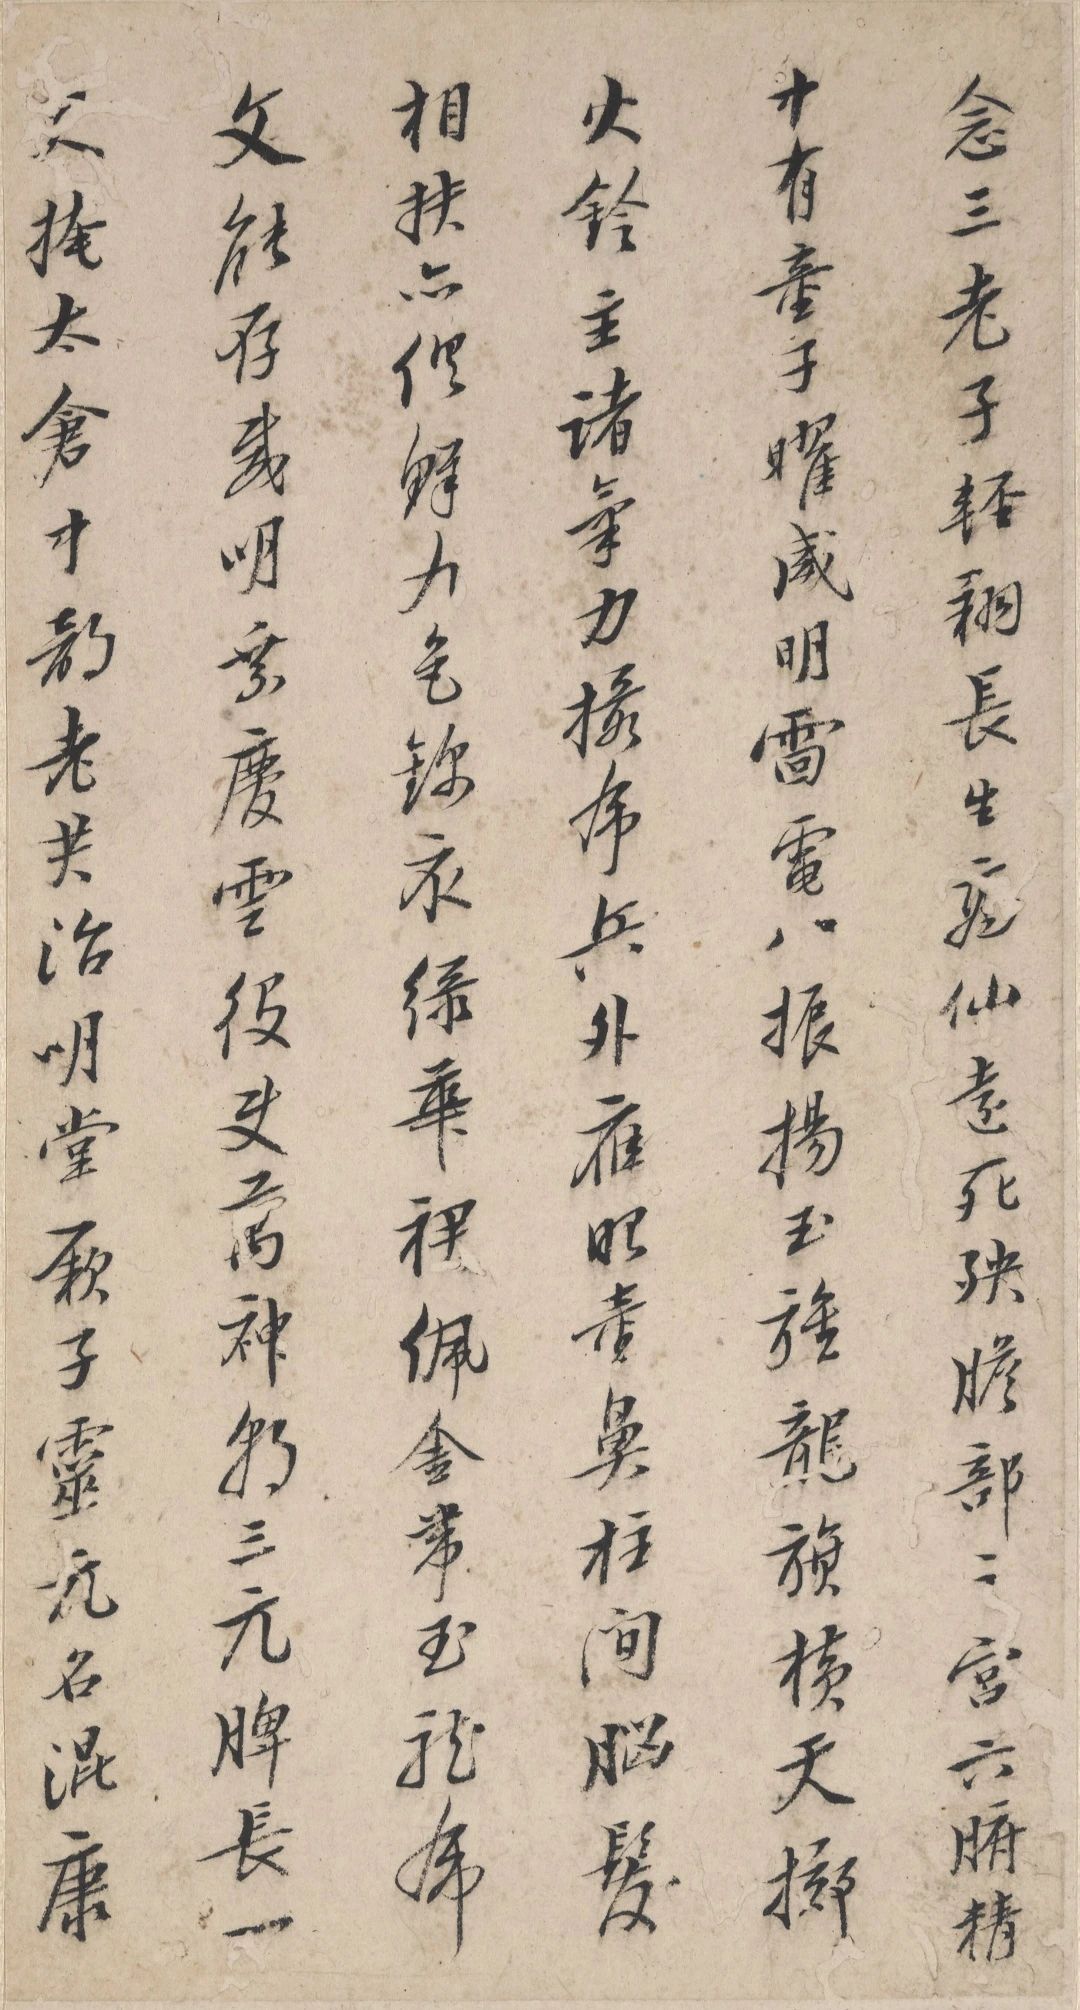 念三老子輕翔長生飛仙遠死殃膽部之宮六腑精
中有童子曜威明雷電八振揚玉旌龍旗橫天擲
火鈴主諸氣力攝虎兵外應眼童鼻柱間腦髮
相扶亦俱鮮九色錦衣綠華裙佩金帶玉龍虎
文能存威明乘慶雲役使萬神朝三元脾長一
尺掩太倉中部老君治明堂厥子靈元名混康